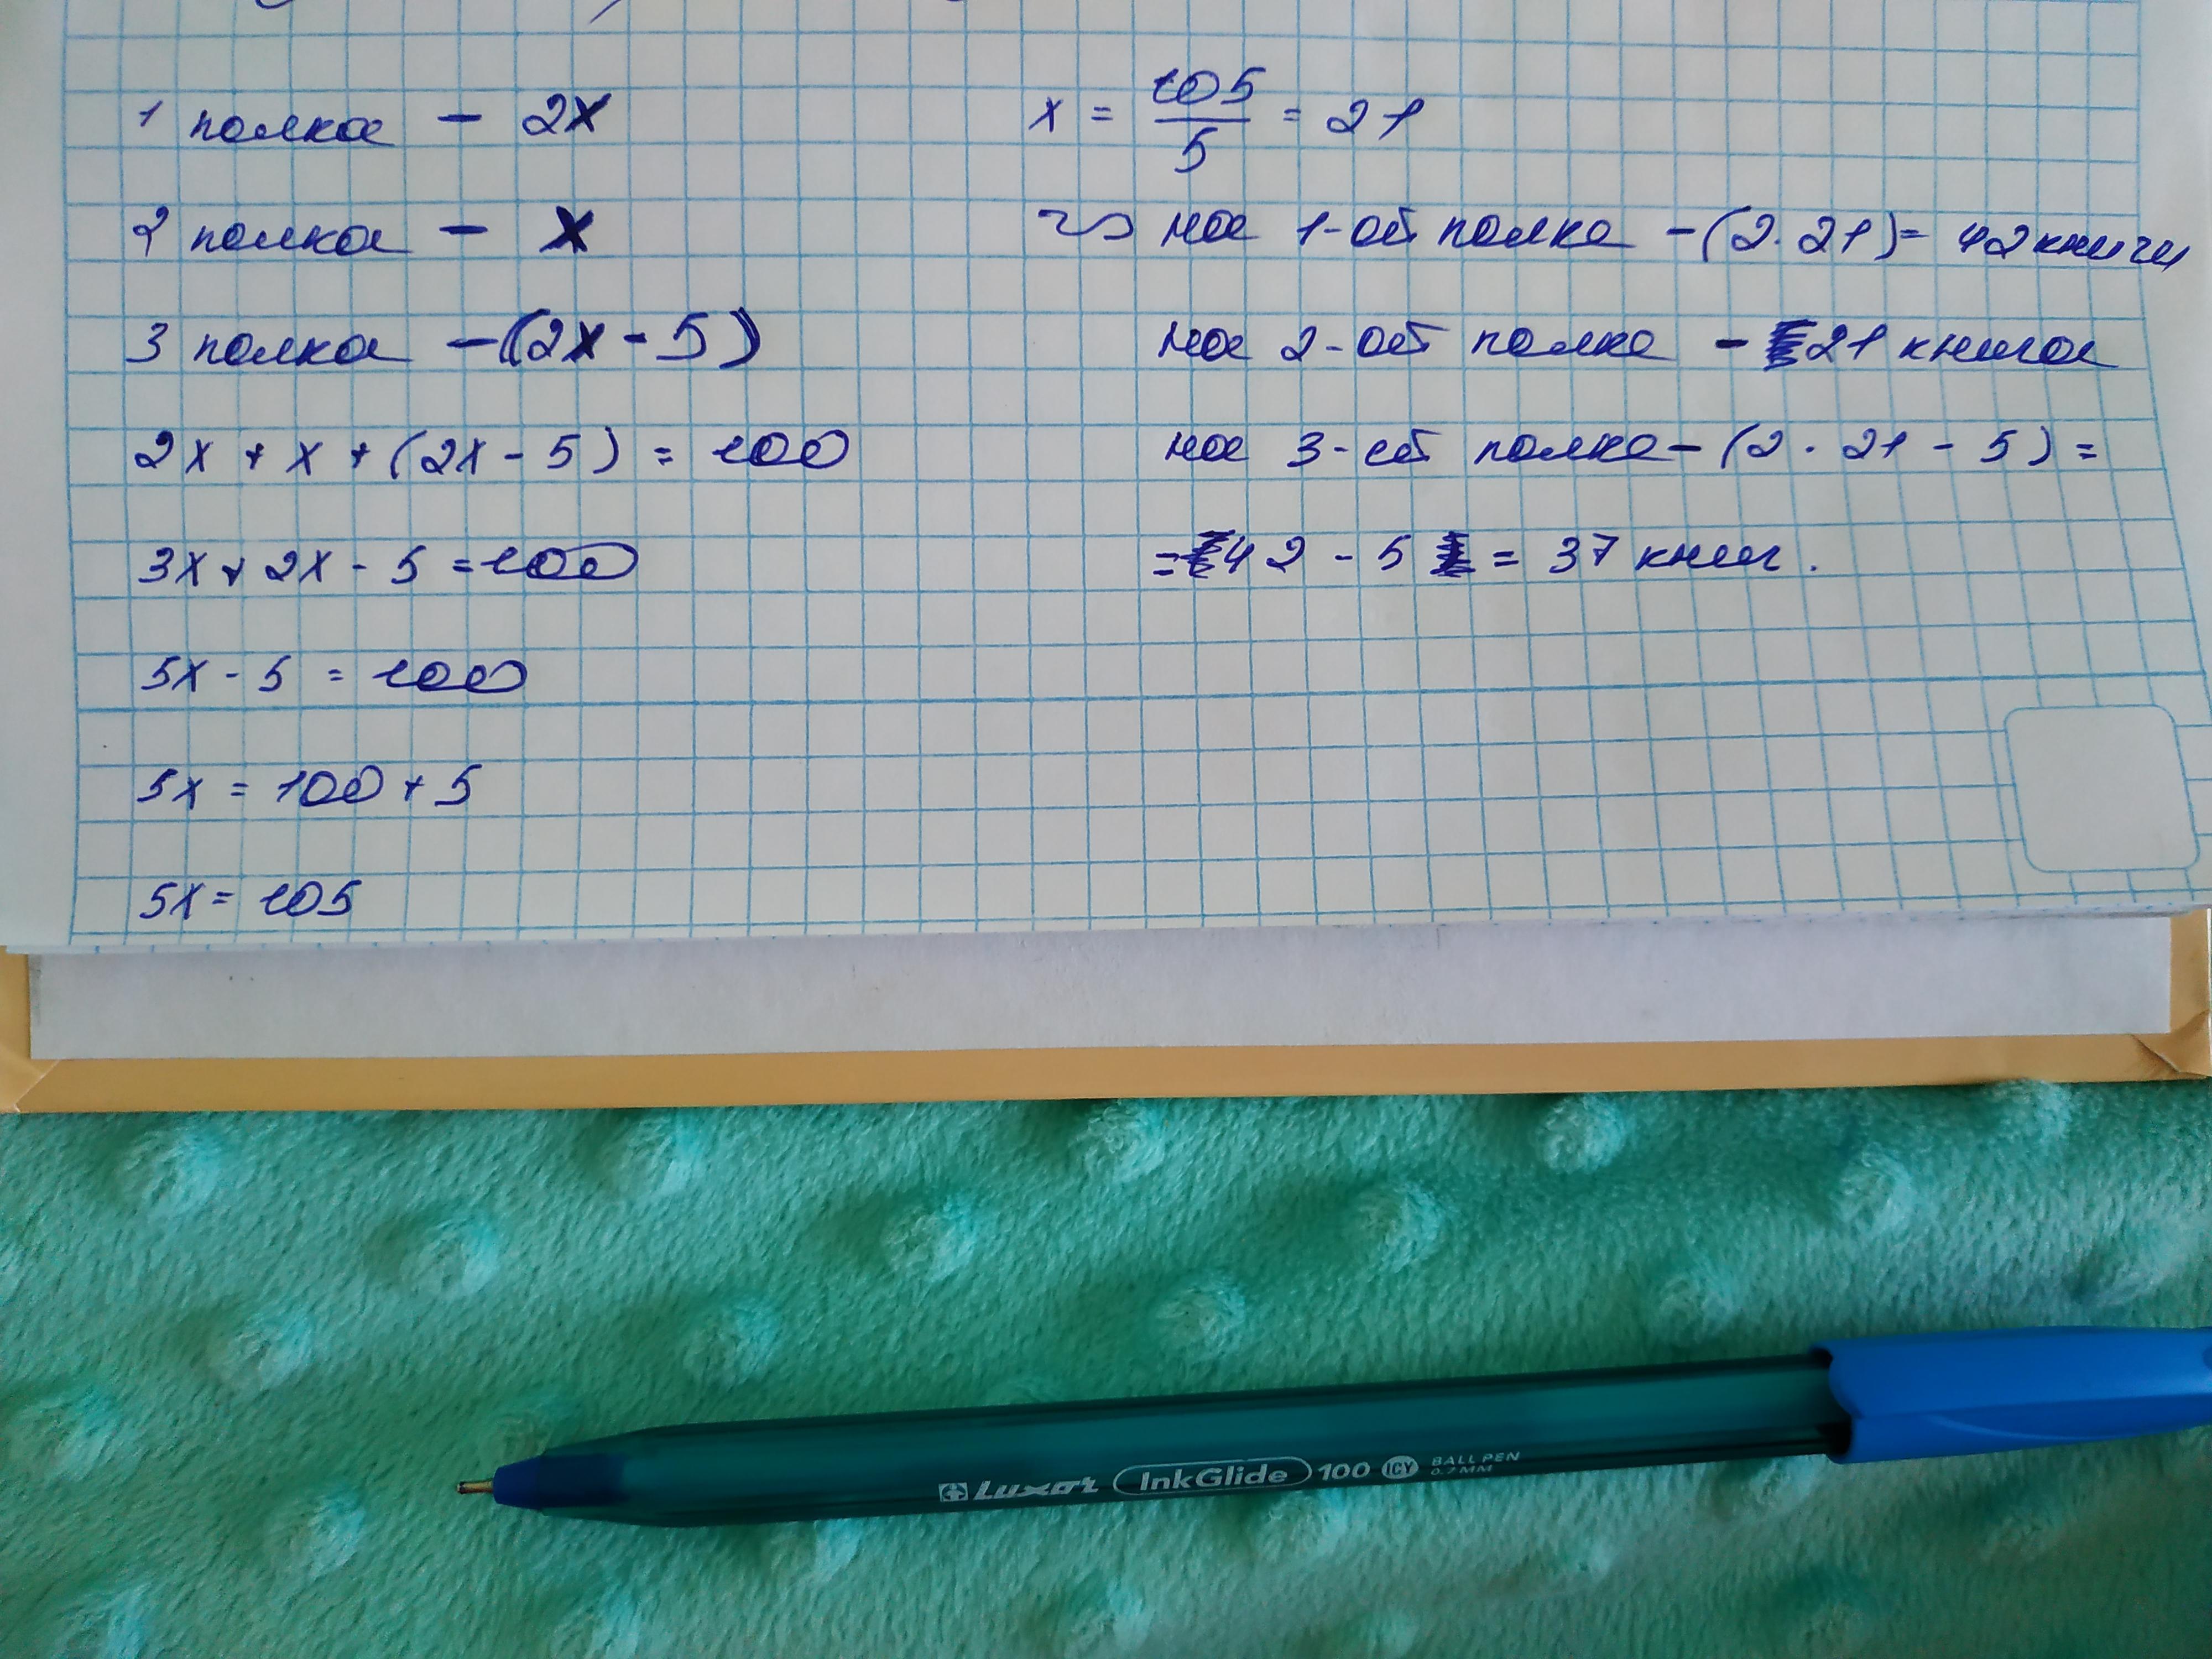 1 полка – 2x
2 полка – x
3 полка – (2x - 5)
2x + x + (2x - 5) = 100
3x + 2x - 5 = 100
5x - 5 = 100
5x = 100 + 5
5x = 105
x = 105/5 = 21
=> на 1-ой полке – (2 · 21) = 42 книги
на 2-ой полке – 21 книга
на 3-ей полке – (2 · 21 - 5) =
= 42 - 5 = 37 книг.
Luxor InkGlide 100 ICY BALL PEN
0.7 MM